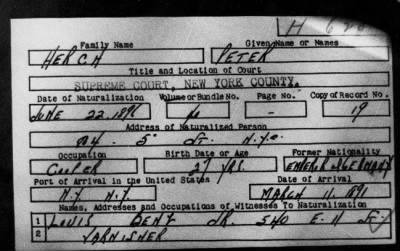 H 620
Family Name
Given Name or Names
HERCH PETER
Title and Location of Court
SUPREME COURT, NEW YORK COUNTY.
Date of Naturalization Volume or Bundle No. Page No. Copy of Record No.
JUNE 22, 1896 - 19
Address of Naturalized Person
5" ST. N.Y.C.
Occupation Birth Date or Age Former Nationality
27 YRS. EMPEROR GERMANY
Port of Arrival in the United States Date of Arrival
N.Y. N.Y. MARCH 11, 1891
Names, Addresses and Occupations of Witnesses To Naturalization
1 LOUIS BENZ JR. 540 E. 11 ST.
2 VARNISHER